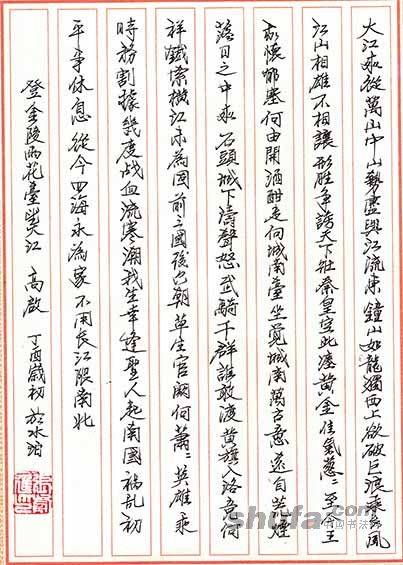 大江來從萬山中山勢盡與江流東鐘山如龍獨西上欲破巨浪乘長風
江山相雄不相讓形胜爭誇天下壯秦皇空此瘞黃金佳氣蔥〻至今王
我懷鬱塞何由開酒酣走向城南臺坐覺城南萬古意遠自荒煙
落日之中來石頭城下濤聲怒武騎千群誰敢渡黃旗入洛竟何
祥鐵索橫江未為固前三國後六朝草生宮闕何蕭〻英雄乘
時務割據幾度战血流寒潮我生幸逢聖人起南國禍亂初
平事休息從今四海永為家不用長江限南北
登金陵雨花臺望江 高啟 丁酉歲初 於水泊
shufa.com